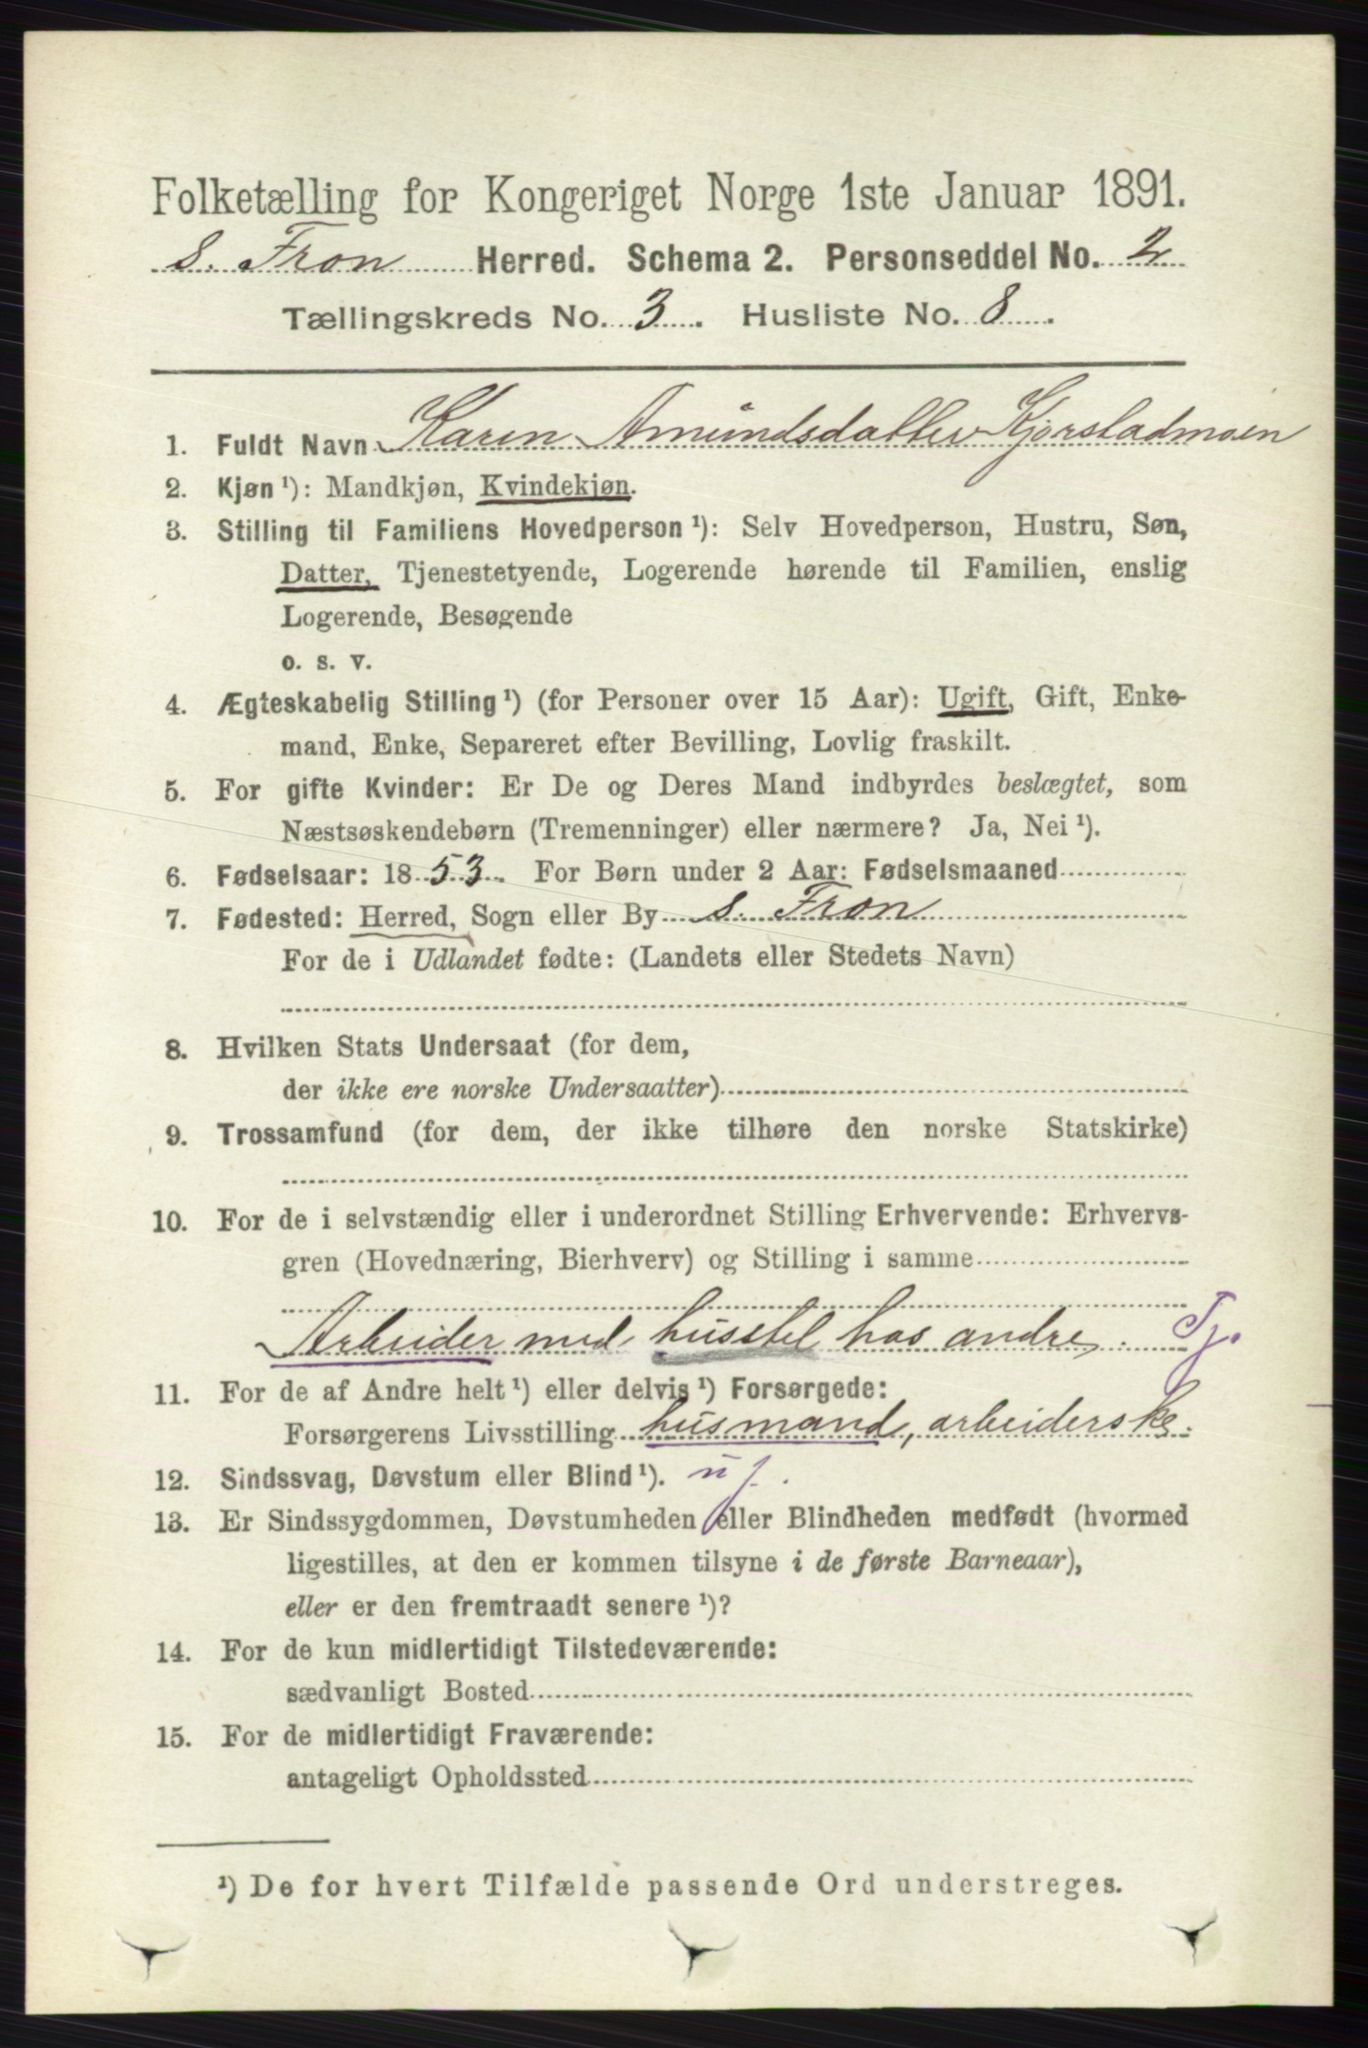 Folketælling for Kongeriget Norge 1ste Januar 1891.
S. Fron Herred. Schema 2. Personseddel No. 2
Tællingskreds No. 3. Husliste No. 8.
1. Fuldt Navn Karen Amundsdatter Kjørstadmoen
2. Kjøn¹): Mandkjøn, Kvindekjøn.
3. Stilling til Familiens Hovedperson¹): Selv Hovedperson, Hustru, Søn,
Datter, Tjenestetyende, Logerende hørende til Familien, enslig
Logerende, Besøgende
o. s. v.
4. Ægteskabelig Stilling¹) (for Personer over 15 Aar): Ugift, Gift, Enke-
mand, Enke, Separeret efter Bevilling, Lovlig fraskilt.
5. For gifte Kvinder: Er De og Deres Mand indbyrdes beslægtet, som
Næstsøskendebørn (Tremenninger) eller nærmere? Ja, Nei¹).
6. Fødselsaar: 1853. For Børn under 2 Aar: Fødselsmaaned
7. Fødested: Herred, Sogn eller By S. Fron
For de i Udlandet fødte: (Landets eller Stedets Navn)
8. Hvilken Stats Undersaat (for dem,
der ikke ere norske Undersaatter)
9. Trossamfund (for dem, der ikke tilhøre den norske Statskirke)
10. For de i selvstændig eller i underordnet Stilling Erhvervende: Erhvervs-
gren (Hovednæring, Bierhverv) og Stilling i samme
Arbeider med husstel hos andre. Tj.
11. For de af Andre helt¹) eller delvis¹) Forsørgede:
Forsørgerens Livsstilling husmand, arbeiderske.
12. Sindssvag, Døvstum eller Blind¹).
13. Er Sindssygdommen, Døvstumheden eller Blindheden medfødt (hvormed
ligestilles, at den er kommen tilsyne i de første Barneaar),
eller er den fremtraadt senere¹)?
14. For de kun midlertidigt Tilstedeværende:
sædvanligt Bosted
15. For de midlertidigt Fraværende:
antageligt Opholdssted
¹) De for hvert Tilfælde passende Ord understreges.